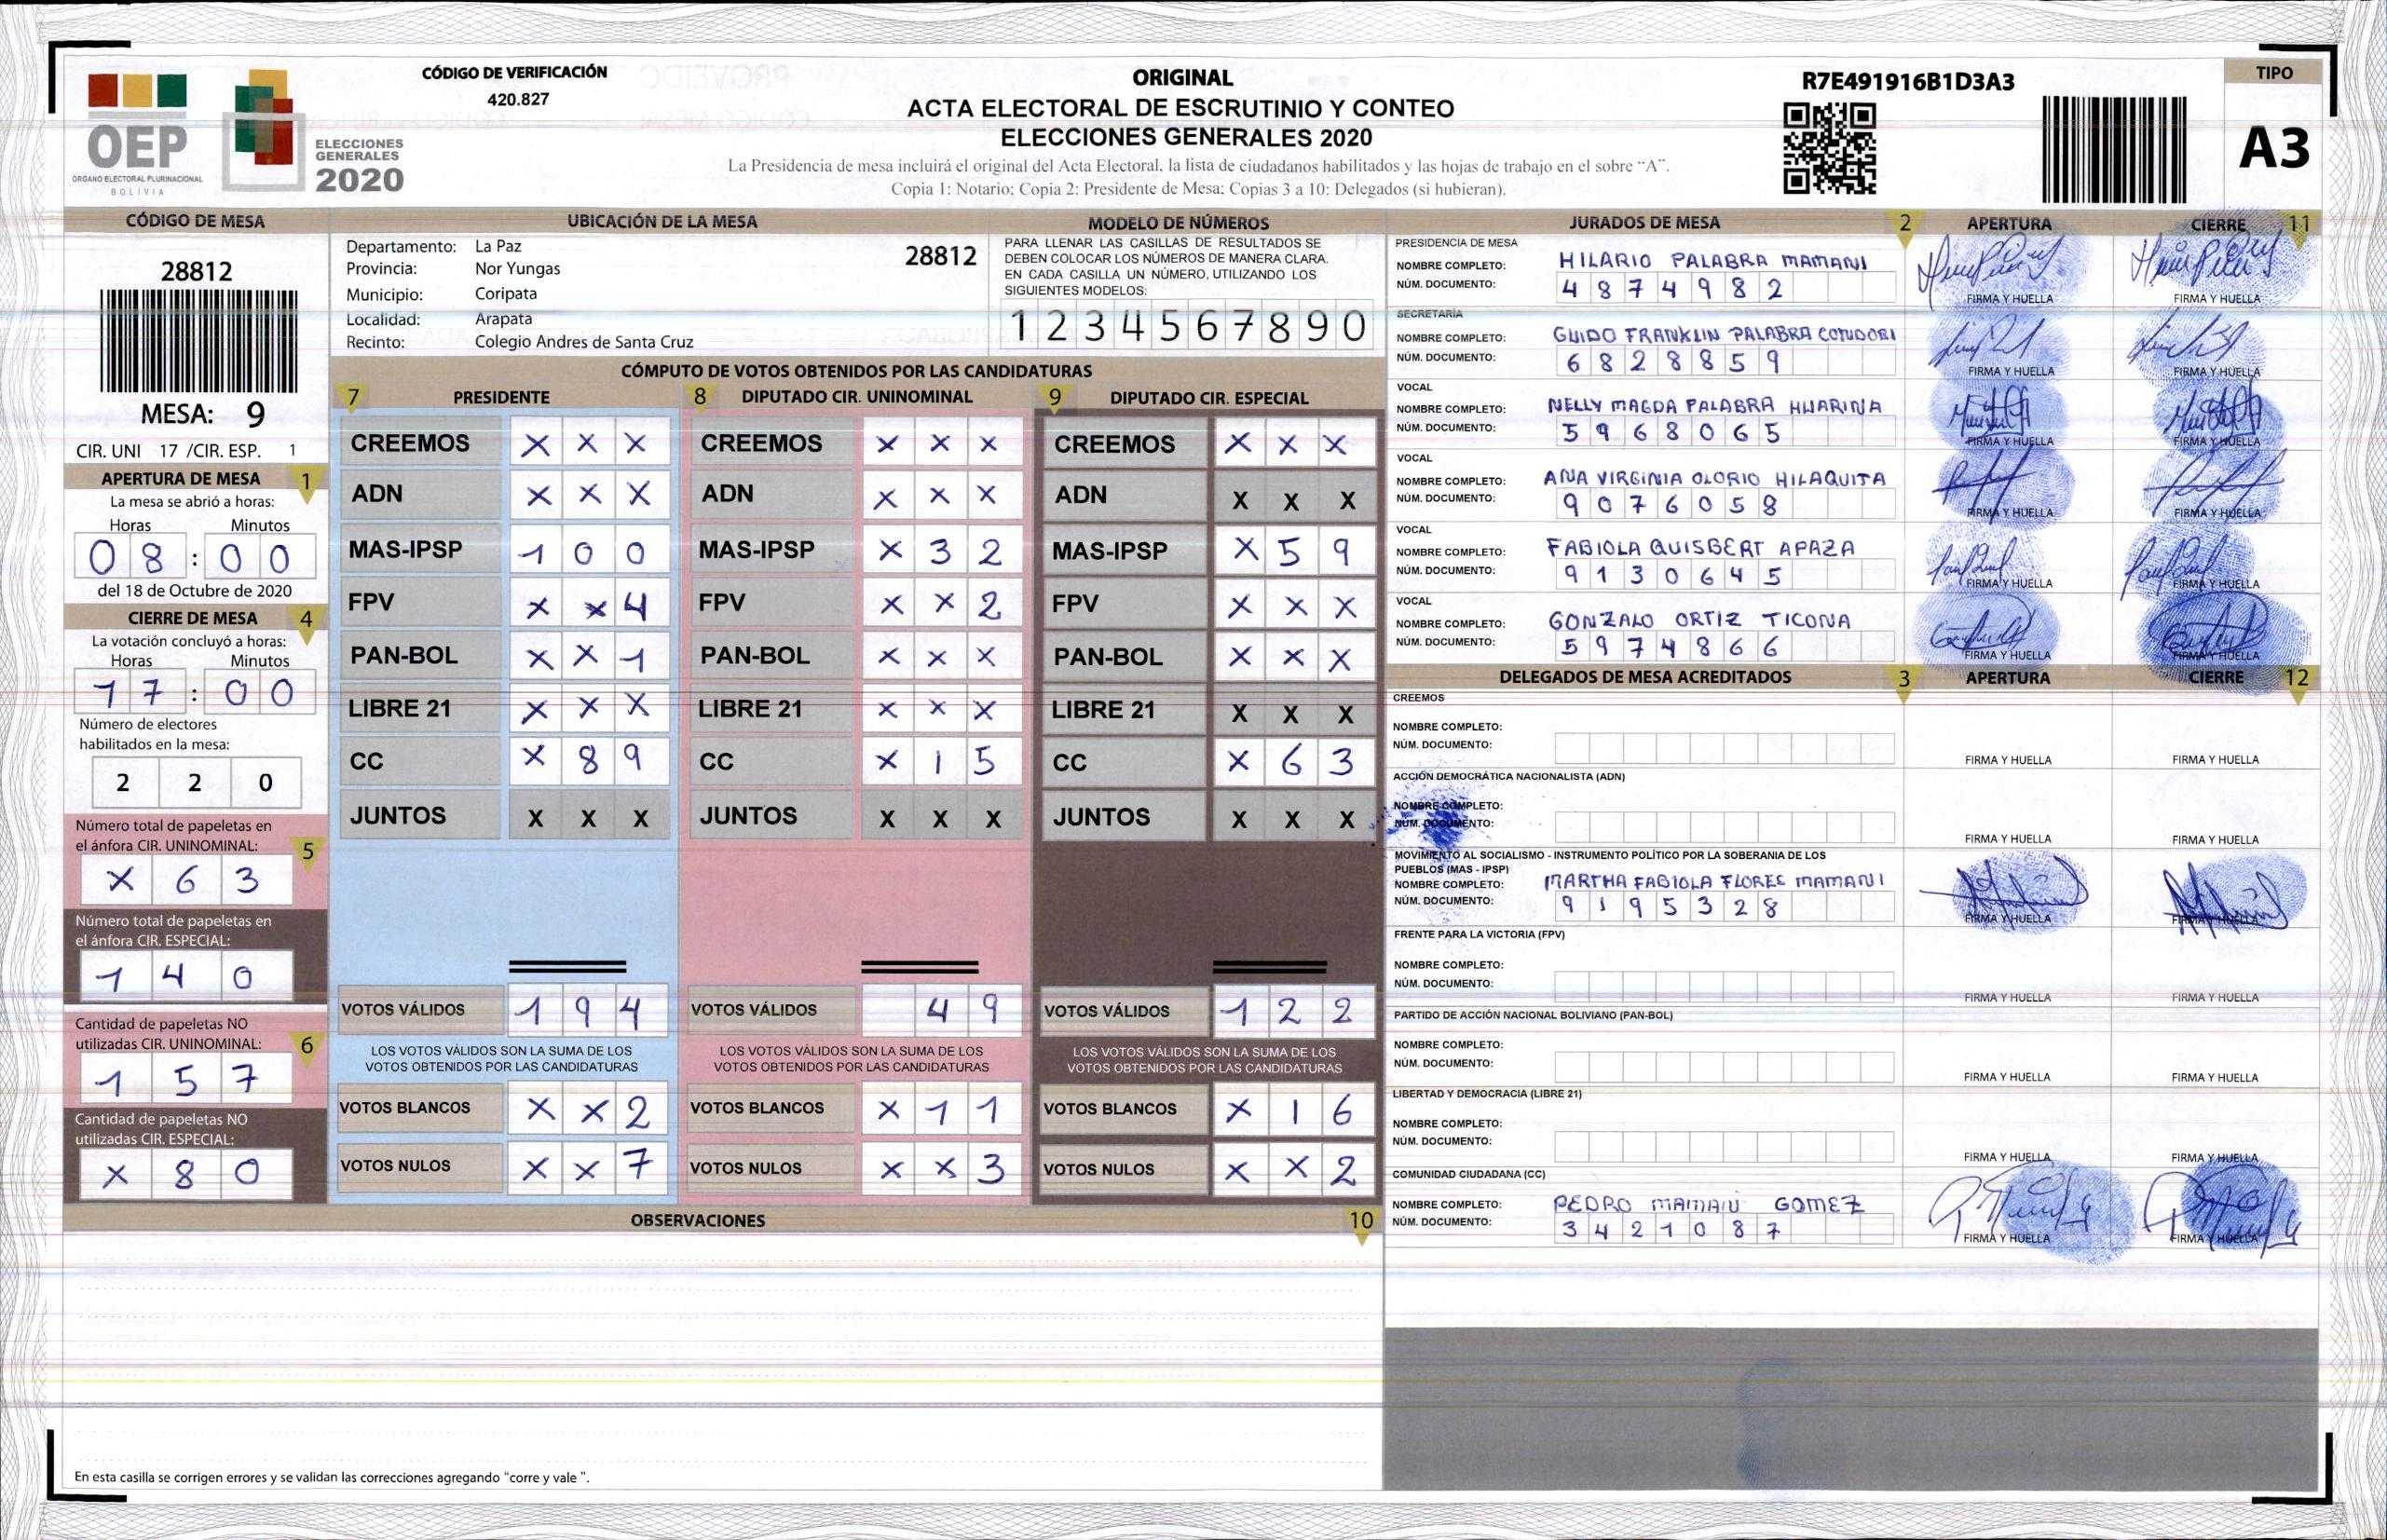 CÓDIGO DE VERIFICACIÓN
420.827
OEP
ÓRGANO ELECTORAL PLURINACIONAL
BOLIVIA
ELECCIONES
GENERALES
2020
ORIGINAL
ACTA ELECTORAL DE ESCRUTINIO Y CONTEO
ELECCIONES GENERALES 2020
La Presidencia de mesa incluirá el original del Acta Electoral, la lista de ciudadanos habilitados y las hojas de trabajo en el sobre "A".
Copia 1: Notario; Copia 2: Presidente de Mesa; Copias 3 a 10: Delegados (si hubieran).
R7E491916B1D3A3
TIPO
A3
CÓDIGO DE MESA
28812
MESA: 9
CIR. UNI 17 /CIR. ESP. 1
APERTURA DE MESA 1
La mesa se abrió a horas:
Horas Minutos
0 8 : 0 0
del 18 de Octubre de 2020
CIERRE DE MESA 4
La votación concluyó a horas:
Horas Minutos
1 7 : 0 0
Número de electores
habilitados en la mesa:
2 2 0
Número total de papeletas en
el ánfora CIR. UNINOMINAL: 5
X 6 3
Número total de papeletas en
el ánfora CIR. ESPECIAL:
1 4 0
Cantidad de papeletas NO
utilizadas CIR. UNINOMINAL: 6
1 5 7
Cantidad de papeletas NO
utilizadas CIR. ESPECIAL:
X 8 0
UBICACIÓN DE LA MESA
Departamento: La Paz 28812
Provincia: Nor Yungas
Municipio: Coripata
Localidad: Arapata
Recinto: Colegio Andres de Santa Cruz
MODELO DE NÚMEROS
PARA LLENAR LAS CASILLAS DE RESULTADOS SE
DEBEN COLOCAR LOS NÚMEROS DE MANERA CLARA.
EN CADA CASILLA UN NÚMERO, UTILIZANDO LOS
SIGUIENTES MODELOS:
1 2 3 4 5 6 7 8 9 0
CÓMPUTO DE VOTOS OBTENIDOS POR LAS CANDIDATURAS
7 PRESIDENTE
CREEMOS X X X
ADN X X X
MAS-IPSP 1 0 0
FPV X X 4
PAN-BOL X X 1
LIBRE 21 X X X
CC X 8 9
JUNTOS X X X
VOTOS VÁLIDOS 1 9 4
LOS VOTOS VÁLIDOS SON LA SUMA DE LOS
VOTOS OBTENIDOS POR LAS CANDIDATURAS
VOTOS BLANCOS X X 2
VOTOS NULOS X X 7
8 DIPUTADO CIR. UNINOMINAL
CREEMOS X X X
ADN X X X
MAS-IPSP X 3 2
FPV X X 2
PAN-BOL X X X
LIBRE 21 X X X
CC X 1 5
JUNTOS X X X
VOTOS VÁLIDOS 4 9
LOS VOTOS VÁLIDOS SON LA SUMA DE LOS
VOTOS OBTENIDOS POR LAS CANDIDATURAS
VOTOS BLANCOS X 1 1
VOTOS NULOS X X 3
9 DIPUTADO CIR. ESPECIAL
CREEMOS X X X
ADN X X X
MAS-IPSP X 5 9
FPV X X X
PAN-BOL X X X
LIBRE 21 X X X
CC X 6 3
JUNTOS X X X
VOTOS VÁLIDOS 1 2 2
LOS VOTOS VÁLIDOS SON LA SUMA DE LOS
VOTOS OBTENIDOS POR LAS CANDIDATURAS
VOTOS BLANCOS X 1 6
VOTOS NULOS X X 2
OBSERVACIONES 10
En esta casilla se corrigen errores y se validan las correcciones agregando "corre y vale ".
JURADOS DE MESA 2 APERTURA CIERRE 11
PRESIDENCIA DE MESA
NOMBRE COMPLETO: HILARIO PALABRA MAMANI
NÚM. DOCUMENTO: 4 8 7 4 9 8 2
FIRMA Y HUELLA FIRMA Y HUELLA
SECRETARÍA
NOMBRE COMPLETO: GUIDO FRANKLIN PALABRA CONDORI
NÚM. DOCUMENTO: 6 8 2 8 8 5 9
FIRMA Y HUELLA FIRMA Y HUELLA
VOCAL
NOMBRE COMPLETO: NELLY MAGDA PALABRA HUARINA
NÚM. DOCUMENTO: 5 9 6 8 0 6 5
FIRMA Y HUELLA FIRMA Y HUELLA
VOCAL
NOMBRE COMPLETO: ANA VIRGINIA OLORIO HILAQUITA
NÚM. DOCUMENTO: 9 0 7 6 0 5 8
FIRMA Y HUELLA FIRMA Y HUELLA
VOCAL
NOMBRE COMPLETO: FABIOLA QUISBERT APAZA
NÚM. DOCUMENTO: 9 1 3 0 6 4 5
FIRMA Y HUELLA FIRMA Y HUELLA
VOCAL
NOMBRE COMPLETO: GONZALO ORTIZ TICONA
NÚM. DOCUMENTO: 5 9 7 4 8 6 6
FIRMA Y HUELLA FIRMA Y HUELLA
DELEGADOS DE MESA ACREDITADOS 3 APERTURA CIERRE 12
CREEMOS
NOMBRE COMPLETO:
NÚM. DOCUMENTO:
FIRMA Y HUELLA FIRMA Y HUELLA
ACCIÓN DEMOCRÁTICA NACIONALISTA (ADN)
NOMBRE COMPLETO:
NÚM. DOCUMENTO:
FIRMA Y HUELLA FIRMA Y HUELLA
MOVIMIENTO AL SOCIALISMO - INSTRUMENTO POLÍTICO POR LA SOBERANIA DE LOS
PUEBLOS (MAS - IPSP)
NOMBRE COMPLETO: MARTHA FABIOLA FLORES MAMANI
NÚM. DOCUMENTO: 9 1 9 5 3 2 8
FIRMA Y HUELLA FIRMA Y HUELLA
FRENTE PARA LA VICTORIA (FPV)
NOMBRE COMPLETO:
NÚM. DOCUMENTO:
FIRMA Y HUELLA FIRMA Y HUELLA
PARTIDO DE ACCIÓN NACIONAL BOLIVIANO (PAN-BOL)
NOMBRE COMPLETO:
NÚM. DOCUMENTO:
FIRMA Y HUELLA FIRMA Y HUELLA
LIBERTAD Y DEMOCRACIA (LIBRE 21)
NOMBRE COMPLETO:
NÚM. DOCUMENTO:
FIRMA Y HUELLA FIRMA Y HUELLA
COMUNIDAD CIUDADANA (CC)
NOMBRE COMPLETO: PEDRO MAMANI GOMEZ
NÚM. DOCUMENTO: 3 4 2 1 0 8 7
FIRMA Y HUELLA FIRMA Y HUELLA